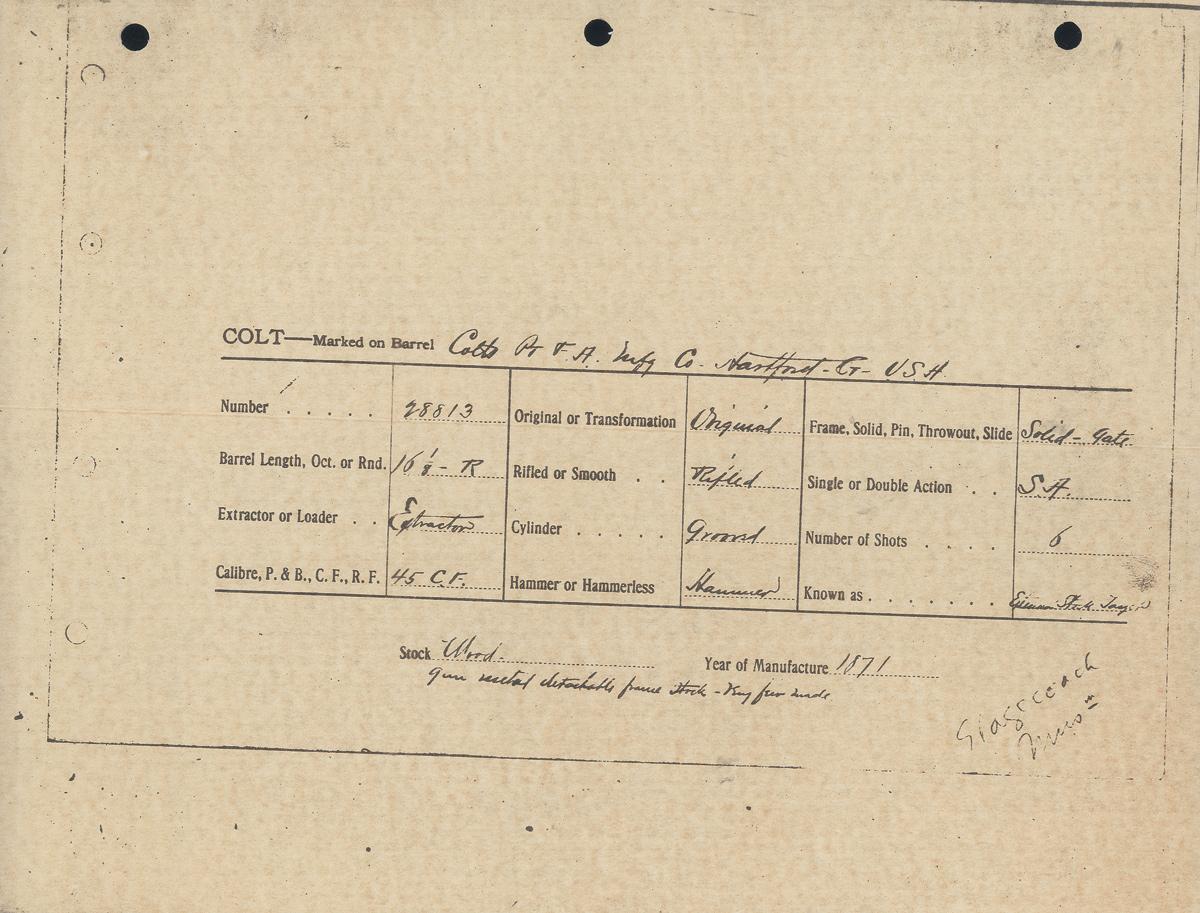 COLT—Marked on Barrel Colts Pt F. A. Mfg Co. Hartford - Ct - U.S.A.
Number . . . . . 28813 Original or Transformation Original Frame, Solid, Pin, Throwout, Slide Solid - Gate
Barrel Length, Oct. or Rnd. 16 1/8 - R Rifled or Smooth . . Rifled Single or Double Action . . S.A.
Extractor or Loader . . Extractor Cylinder . . . . . Groovd Number of Shots . . . . 6
Calibre, P. & B., C. F., R. F. 45 C.F. Hammer or Hammerless Hammer Known as . . . . . . . Stock
Stock Wood. Year of Manufacture 1871
Gun metal detachable frame stock - Very few made
Stagecoach